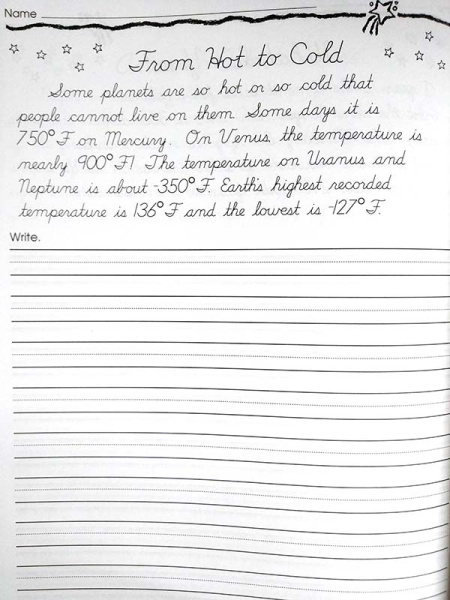 Name
From Hot to Cold
Some planets are so hot or so cold that
people cannot live on them. Some days it is
750° F on Mercury. On Venus, the temperature is
nearly 900° F! The temperature on Uranus and
Neptune is about -350° F. Earth's highest recorded
temperature is 136° F and the lowest is -127° F.
Write.